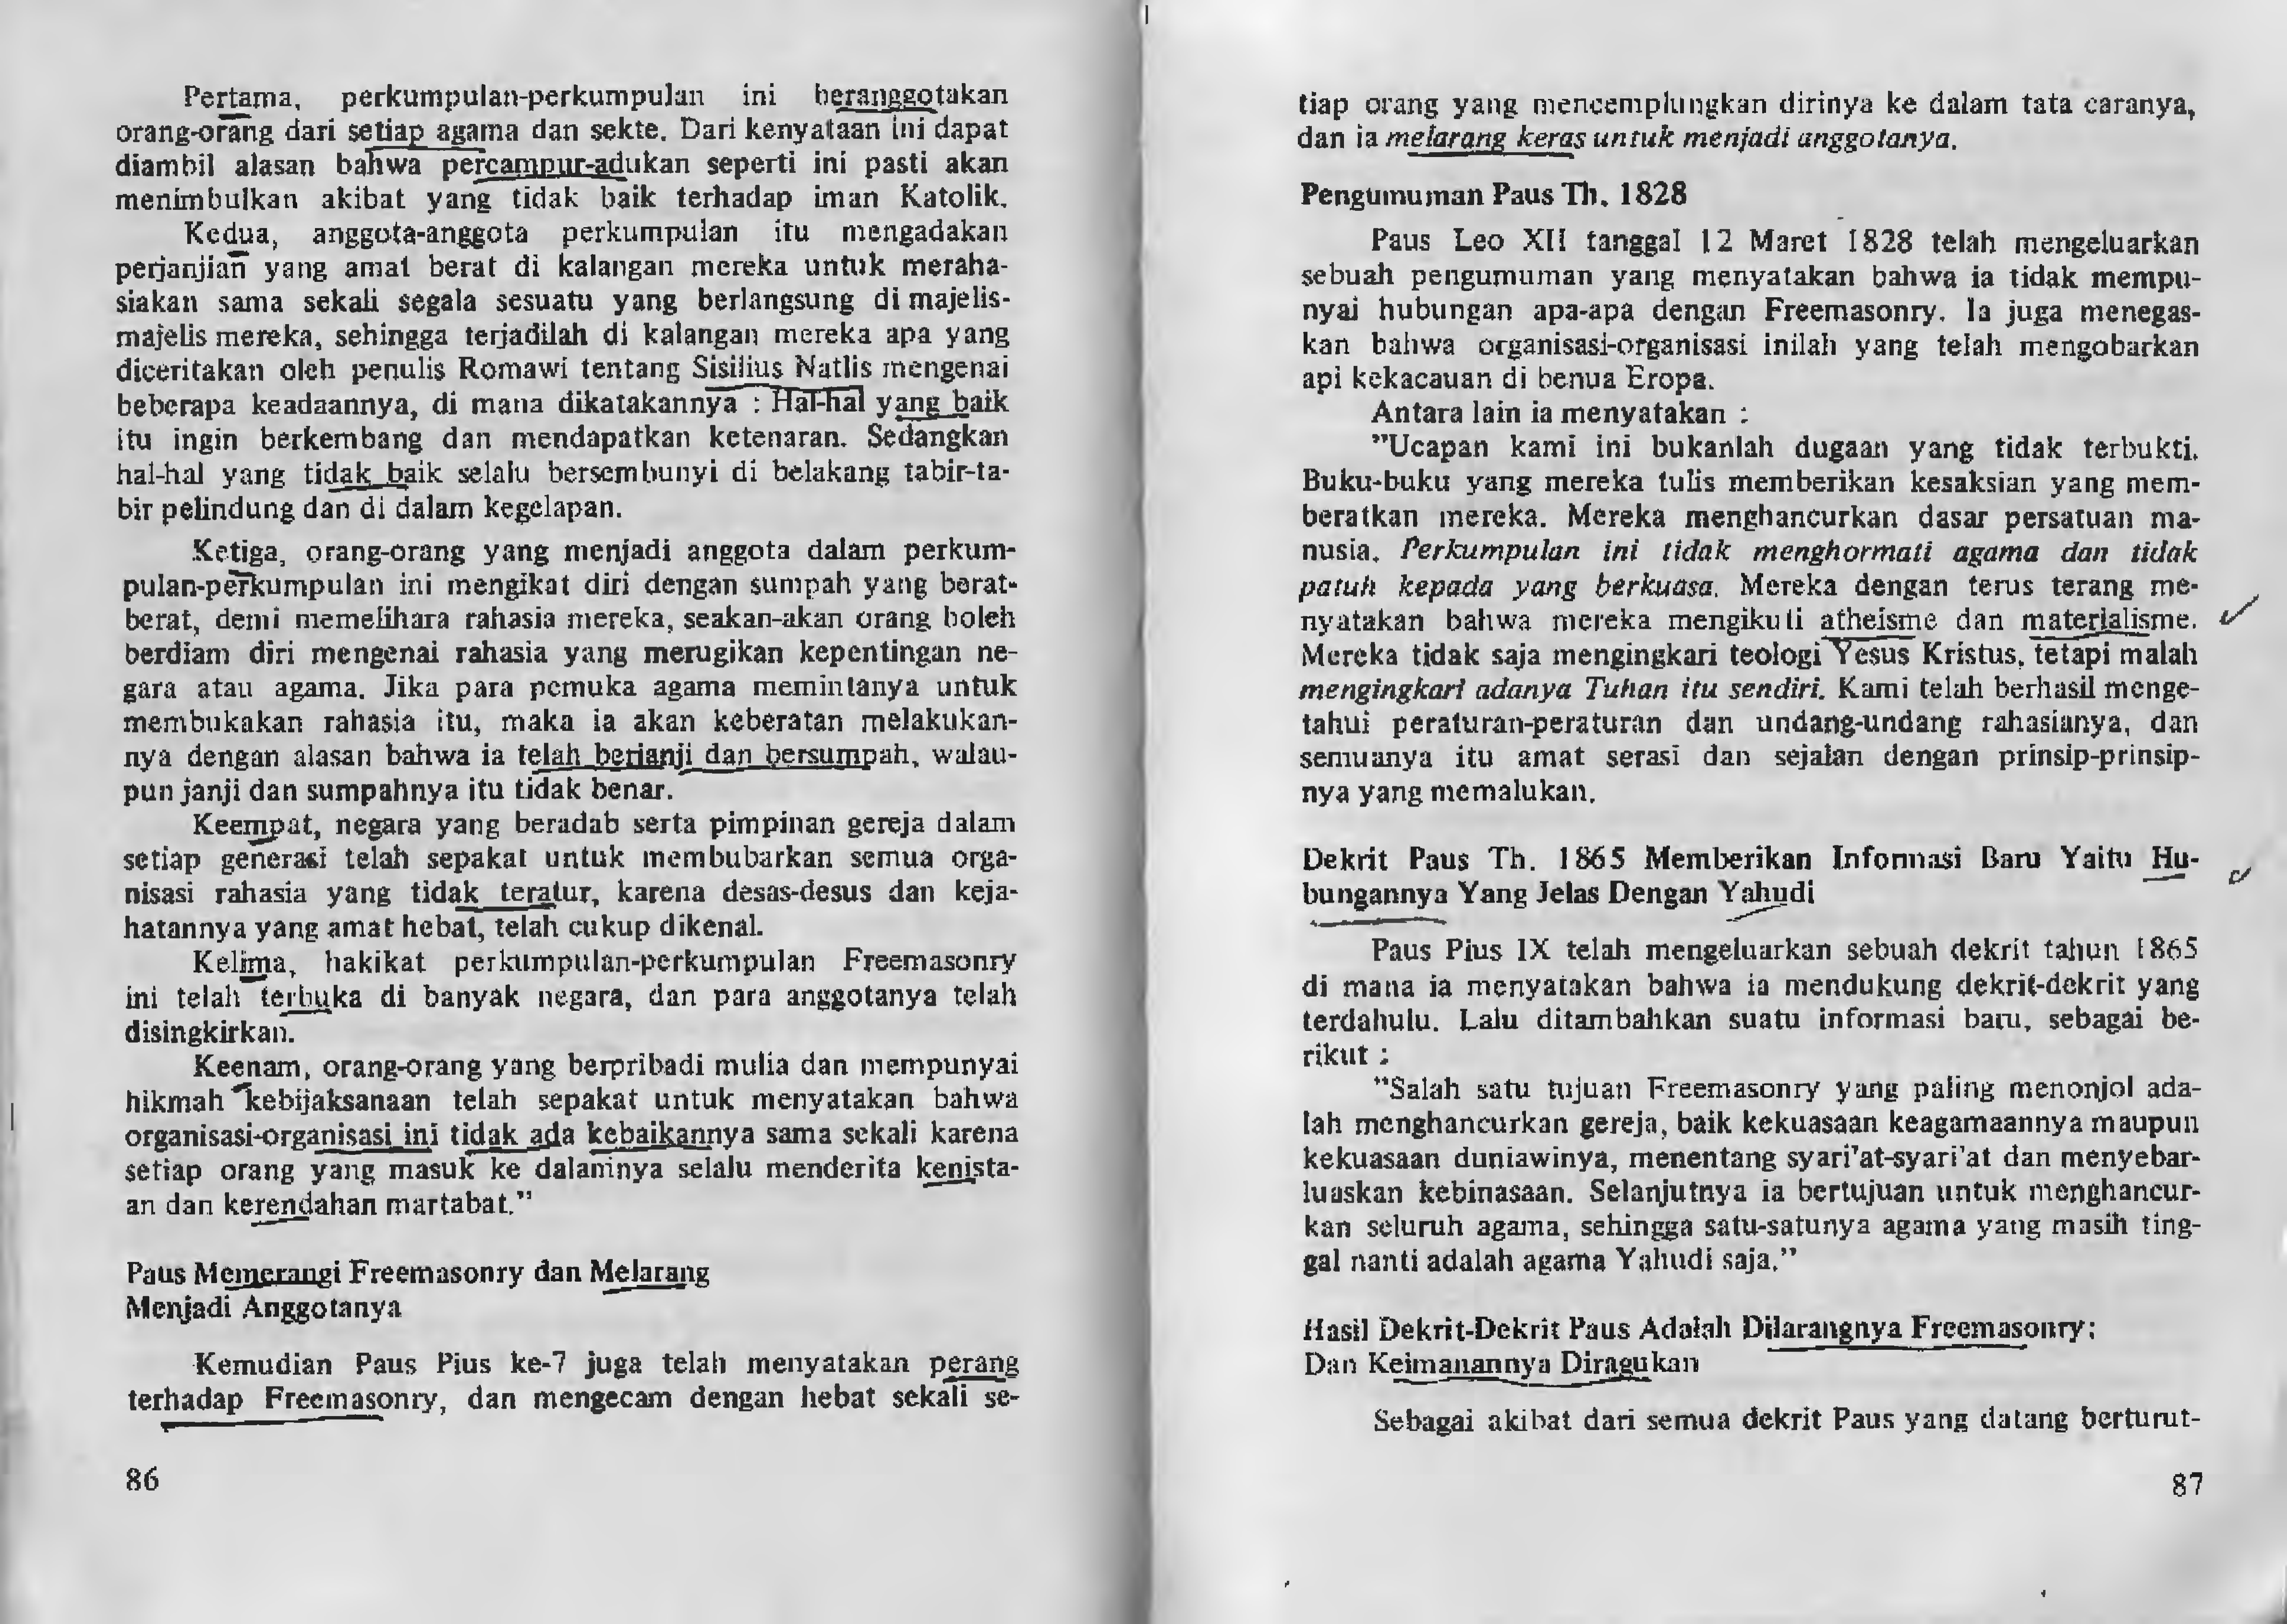 Pertama, perkumpulan-perkumpulan ini beranggotakan
orang-orang dari setiap agama dan sekte. Dari kenyataan ini dapat
diambil alasan bahwa percampur-adukan seperti ini pasti akan
menimbulkan akibat yang tidak baik terhadap iman Katolik.
Kedua, anggota-anggota perkumpulan itu mengadakan
perjanjian yang amat berat di kalangan mereka untuk meraha-
siakan sama sekali segala sesuatu yang berlangsung di majelis-
majelis mereka, sehingga terjadilah di kalangan mereka apa yang
diceritakan oleh penulis Romawi tentang Sisilius Natlis mengenai
beberapa keadaannya, di mana dikatakannya : Hal-hal yang baik
itu ingin berkembang dan mendapatkan ketenaran. Sedangkan
hal-hal yang tidak baik selalu bersembunyi di belakang tabir-ta-
bir pelindung dan di dalam kegelapan.
Ketiga, orang-orang yang menjadi anggota dalam perkum-
pulan-perkumpulan ini mengikat diri dengan sumpah yang berat-
berat, demi memelihara rahasia mereka, seakan-akan orang boleh
berdiam diri mengenai rahasia yang merugikan kepentingan ne-
gara atau agama. Jika para pemuka agama memintanya untuk
membukakan rahasia itu, maka ia akan keberatan melakukan-
nya dengan alasan bahwa ia telah berjanji dan bersumpah, walau-
pun janji dan sumpahnya itu tidak benar.
Keempat, negara yang beradab serta pimpinan gereja dalam
setiap generasi telah sepakat untuk membubarkan semua orga-
nisasi rahasia yang tidak teratur, karena desas-desus dan keja-
hatannya yang amat hebat, telah cukup dikenal.
Kelima, hakikat perkumpulan-perkumpulan Freemasonry
ini telah terbuka di banyak negara, dan para anggotanya telah
disingkirkan.
Keenam, orang-orang yang berpribadi mulia dan mempunyai
hikmah kebijaksanaan telah sepakat untuk menyatakan bahwa
organisasi-organisasi ini tidak ada kebaikannya sama sekali karena
setiap orang yang masuk ke dalamnya selalu menderita kenista-
an dan kerendahan martabat."
Paus Memerangi Freemasonry dan Melarang
Menjadi Anggotanya
Kemudian Paus Pius ke-7 juga telah menyatakan perang
terhadap Freemasonry, dan mengecam dengan hebat sekali se-
86
tiap orang yang mencemplungkan dirinya ke dalam tata caranya,
dan ia melarang keras untuk menjadi anggotanya.
Pengumuman Paus Th. 1828
Paus Leo XII tanggal 12 Maret 1828 telah mengeluarkan
sebuah pengumuman yang menyatakan bahwa ia tidak mempu-
nyai hubungan apa-apa dengan Freemasonry. Ia juga menegas-
kan bahwa organisasi-organisasi inilah yang telah mengobarkan
api kekacauan di benua Eropa.
Antara lain ia menyatakan :
"Ucapan kami ini bukanlah dugaan yang tidak terbukti.
Buku-buku yang mereka tulis memberikan kesaksian yang mem-
beratkan mereka. Mereka menghancurkan dasar persatuan ma-
nusia. Perkumpulan ini tidak menghormati agama dan tidak
patuh kepada yang berkuasa. Mereka dengan terus terang me-
nyatakan bahwa mereka mengikuti atheisme dan materialisme.
Mereka tidak saja mengingkari teologi Yesus Kristus, tetapi malah
mengingkari adanya Tuhan itu sendiri. Kami telah berhasil menge-
tahui peraturan-peraturan dan undang-undang rahasianya, dan
semuanya itu amat serasi dan sejalan dengan prinsip-prinsip-
nya yang memalukan.
Dekrit Paus Th. 1865 Memberikan Informasi Baru Yaitu Hu-
bungannya Yang Jelas Dengan Yahudi
Paus Pius IX telah mengeluarkan sebuah dekrit tahun 1865
di mana ia menyatakan bahwa ia mendukung dekrit-dekrit yang
terdahulu. Lalu ditambahkan suatu informasi baru, sebagai be-
rikut :
"Salah satu tujuan Freemasonry yang paling menonjol ada-
lah menghancurkan gereja, baik kekuasaan keagamaannya maupun
kekuasaan duniawinya, menentang syari'at-syari'at dan menyebar-
luaskan kebinasaan. Selanjutnya ia bertujuan untuk menghancur-
kan seluruh agama, sehingga satu-satunya agama yang masih ting-
gal nanti adalah agama Yahudi saja."
Hasil Dekrit-Dekrit Paus Adalah Dilarangnya Freemasonry;
Dan Keimanannya Diragukan
Sebagai akibat dari semua dekrit Paus yang datang berturut-
87